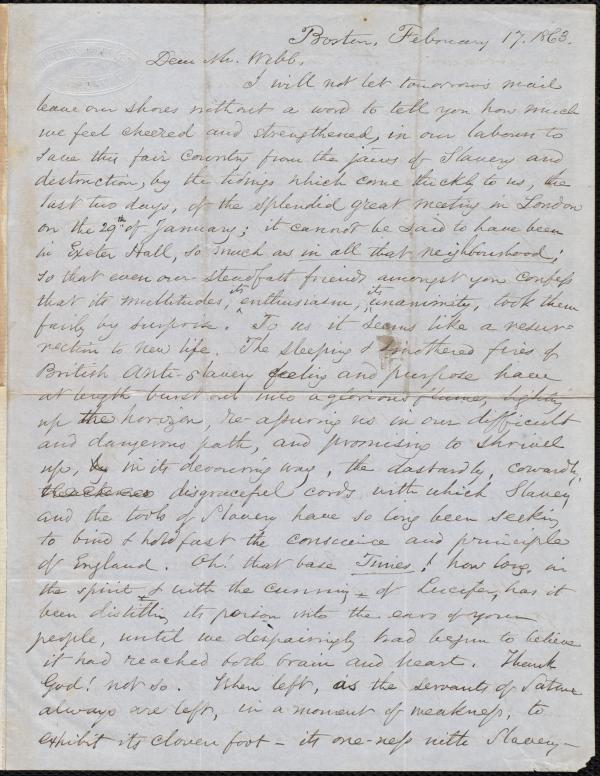 Boston, February 17. 1863.
Dear Mr. Webb.
I will not let tomorrow's mail
leave our shores without a word to tell you how much
we feel cheered and strengthened, in our labours to
save this fair country from the jaws of Slavery and
destruction, by the tidings which come thickly to us, the
last two days, of the splendid great meeting in London
on the 29th of January; it cannot be said to have been
in Exeter Hall, so much as in all that neighbourhood;
so that even our steadfast friends amongst you confess
that its multitudes, its enthusiasm, its unanimity, took them
fairly by surprise. To us it seems like a resur-
rection to new life. The sleeping & smothered fires of
British Anti-Slavery feeling and purpose have
at length burst out into a glorious flame, lighting
up the horizon, re-assuring us in our difficult
and dangerous path, and promising to shrivel
up, in its devouring way, the dastardly, cowardly,
disgraceful cords with which Slavery
and the tools of Slavery have so long been seeking
to bind & hold fast the conscience and principle
of England. Oh! that base Times! how long, in
the spirit - & with the cunning - of Lucifer, has it
been distilling its poison into the ears of your
people, until we despairingly had begun to believe
it had reached both brain and heart. Thank
God! not so. When left, as the servants of Satan
always are left, in a moment of weakness, to
exhibit its cloven foot - its one-ness with Slavery -